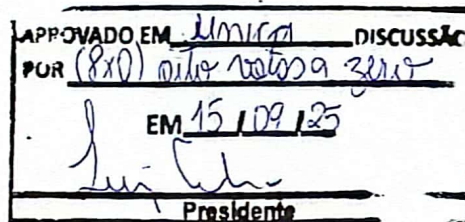 APROVADO EM única DISCUSSÃO
POR (8x0) oito votos a zero
EM 15 / 09 / 25
Presidente